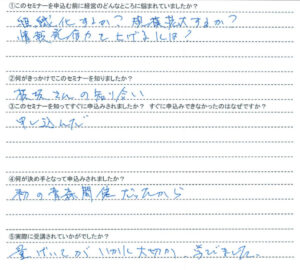 ①このセミナーを申込む前に経営のどんなところに悩まれていましたか？
組織化するか？規模拡大するか？
情報発信力を上げるには？
②何がきっかけでこのセミナーを知りましたか？
さんの知り合い
③このセミナーを知ってすぐに申込みされましたか？ すぐに申込みできなかったのはなぜですか？
申し込んだ
④何が決め手となって申込みされましたか？
初の青森開催だったから
⑤実際に受講されていかがでしたか？
がいかに大切か、学びました。